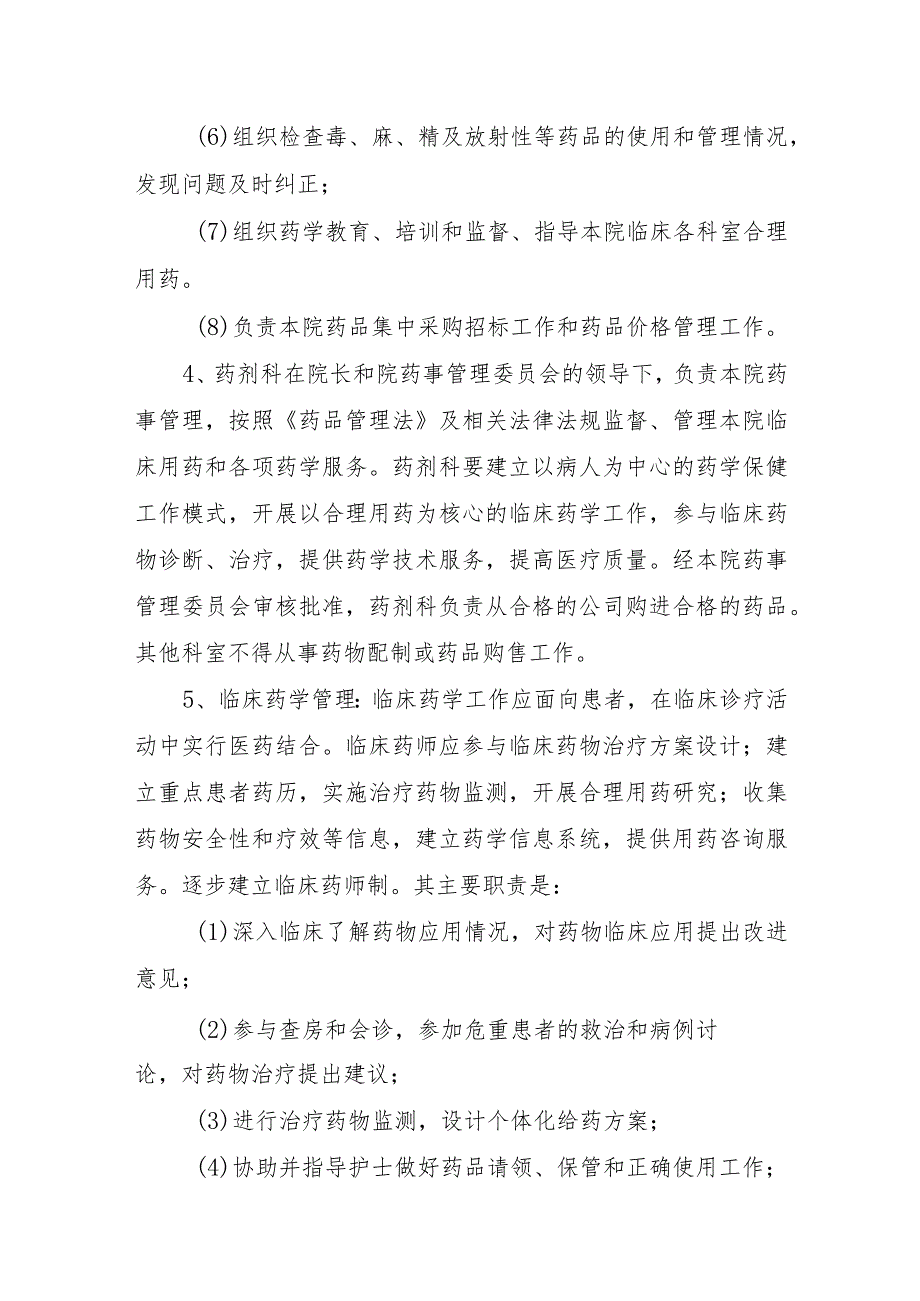 (6)组织检查毒、麻、精及放射性等药品的使用和管理情况，
发现问题及时纠正；
(7)组织药学教育、培训和监督、指导本院临床各科室合理
用药。
(8)负责本院药品集中采购招标工作和药品价格管理工作。
4、药剂科在院长和院药事管理委员会的领导下，负责本院药
事管理，按照《药品管理法》及相关法律法规监督、管理本院临
床用药和各项药学服务。药剂科要建立以病人为中心的药学保健
工作模式，开展以合理用药为核心的临床药学工作，参与临床药
物诊断、治疗，提供药学技术服务，提高医疗质量。经本院药事
管理委员会审核批准，药剂科负责从合格的公司购进合格的药品。
其他科室不得从事药物配制或药品购售工作。
5、临床药学管理：临床药学工作应面向患者，在临床诊疗活
动中实行医药结合。临床药师应参与临床药物治疗方案设计；建
立重点患者药历，实施治疗药物监测，开展合理用药研究；收集
药物安全性和疗效等信息，建立药学信息系统，提供用药咨询服
务。逐步建立临床药师制。其主要职责是：
(1)深入临床了解药物应用情况，对药物临床应用提出改进
意见；
(2)参与查房和会诊，参加危重患者的救治和病例讨
论，对药物治疗提出建议；
(3)进行治疗药物监测，设计个体化给药方案；
(4)协助并指导护士做好药品请领、保管和正确使用工作；